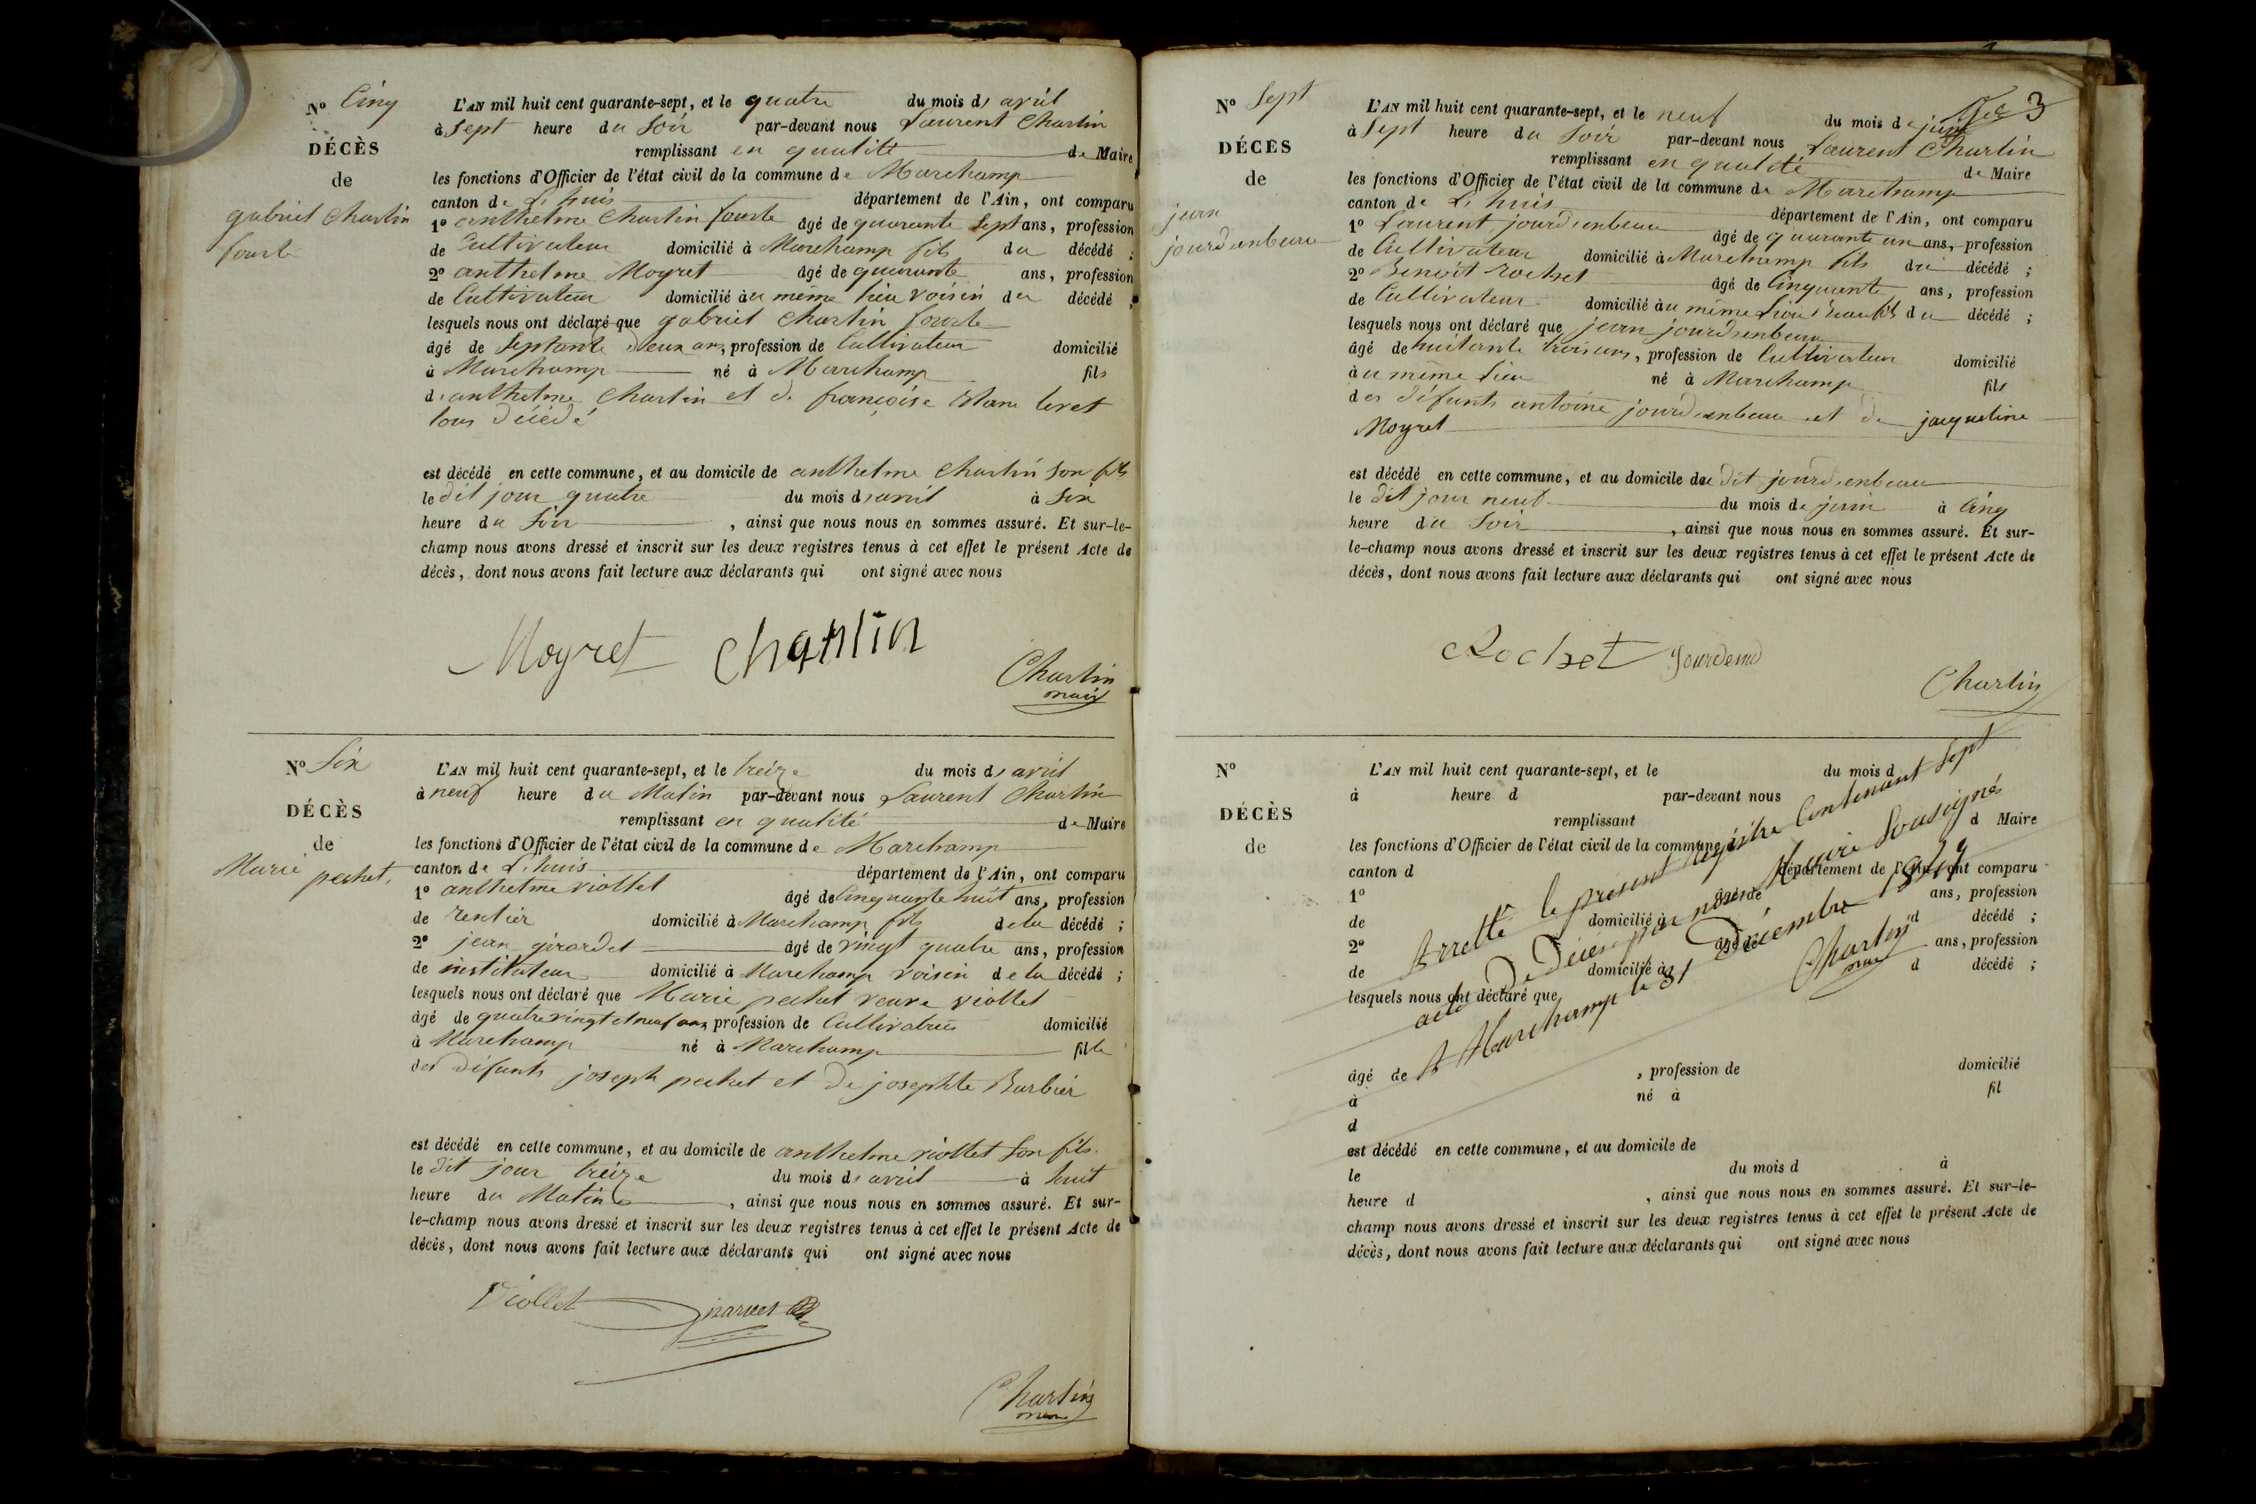 N° Cinq
DÉCÈS
de
gabriel Chartin
fourte
L'AN mil huit cent quarante-sept, et le quatre du mois d'avril
à Sept heure du Soir par-devant nous Laurent Chartin
remplissant en qualité de Maire
les fonctions d'Officier de l'état civil de la commune de Marchamp
canton de L'huis département de l'Ain, ont comparu
1° anthelme Chartin fourte âgé de quarante Sept ans, profession
de Cultivateur domicilié à Marchamp fils du décédé ;
2° anthelme Moyret âgé de quarante ans, profession
de Cultivateur domicilié au même lieu voisin du décédé ;
lesquels nous ont déclaré que gabriel Chartin fourte
âgé de Septante deux ans, profession de Cultivateur domicilié
à Marchamp né à Marchamp fils
d'anthelme Chartin et de françoise
tous décédé
est décédé en cette commune, et au domicile de anthelme Chartin Son fils
le dit jour quatre du mois d'avril à Six
heure du Soir , ainsi que nous nous en sommes assuré. Et sur-le-
champ nous avons dressé et inscrit sur les deux registres tenus à cet effet le présent Acte de
décès, dont nous avons fait lecture aux déclarants qui ont signé avec nous
Moyret Chartin
Chartin
maire
N° Six
DÉCÈS
de
Marie pechet
L'AN mil huit cent quarante-sept, et le treize du mois d'avril
à neuf heure du Matin par-devant nous Laurent Chartin
remplissant en qualité de Maire
les fonctions d'Officier de l'état civil de la commune de Marchamp
canton de L'huis département de l'Ain, ont comparu
1° anthelme viollet âgé de Cinquante huit ans, profession
de rentier domicilié à Marchamp fils de la décédé ;
2° jean girardet âgé de vingt quatre ans, profession
de instituteur domicilié à Marchamp voisin de la décédé ;
lesquels nous ont déclaré que Marie pechet veuve viollet
âgé de quatre vingt et neuf ans profession de Cultivatrice domicilié
à Marchamp né à Marchamp fille
des défunts joseph pechet et de josephte Barbier
est décédé en cette commune, et au domicile de anthelme viollet Son fils
le dit jour treize du mois d'avril à huit
heure du Matin , ainsi que nous nous en sommes assuré. Et sur-
le-champ nous avons dressé et inscrit sur les deux registres tenus à cet effet le présent Acte de
décès, dont nous avons fait lecture aux déclarants qui ont signé avec nous
Viollet
Chartin
maire
3
N° Sept
DÉCÈS
de
jean
jourdenbeau
L'AN mil huit cent quarante-sept, et le neuf du mois de juin
à Sept heure du Soir par-devant nous Laurent Chartin
remplissant en qualité de Maire
les fonctions d'Officier de l'état civil de la commune de Marchamp
canton de L'huis département de l'Ain, ont comparu
1° Laurent jourdenbeau âgé de quarante un ans, profession
de Cultivateur domicilié à Marchamp fils du décédé ;
2° Benoit rochet âgé de Cinquante ans, profession
de Cultivateur domicilié au même Lieu Beaufils du décédé ;
lesquels nous ont déclaré que jean jourdenbeau
âgé de huitante trois ans, profession de Cultivateur domicilié
au même Lieu né à Marchamp fils
des défunts antoine jourdenbeau et de jacqueline
Moyret
est décédé en cette commune, et au domicile du dit jourdenbeau
le dit jour neuf du mois de juin à Cinq
heure du Soir , ainsi que nous nous en sommes assuré. Et sur-
le-champ nous avons dressé et inscrit sur les deux registres tenus à cet effet le présent Acte de
décès, dont nous avons fait lecture aux déclarants qui ont signé avec nous
Rochet
Chartin
N°
DÉCÈS
de
L'AN mil huit cent quarante-sept, et le du mois d
à heure d par-devant nous
remplissant d Maire
les fonctions d'Officier de l'état civil de la commune
canton d département de l'Ain, ont comparu
1° âgé de ans, profession
de domicilié à d décédé ;
2° âgé de ans, profession
de domicilié à d décédé ;
lesquels nous ont déclaré que
Arretté le présent registre Contenant Sept
acte de Décès par nous Maire Sousigné
A Marchamp le 31 Décembre 1847
Chartin
maire
âgé de , profession de domicilié
à né à fil
d
est décédé en cette commune, et au domicile de
le du mois d à
heure d , ainsi que nous nous en sommes assuré. Et sur-le-
champ nous avons dressé et inscrit sur les deux registres tenus à cet effet le présent Acte de
décès, dont nous avons fait lecture aux déclarants qui ont signé avec nous